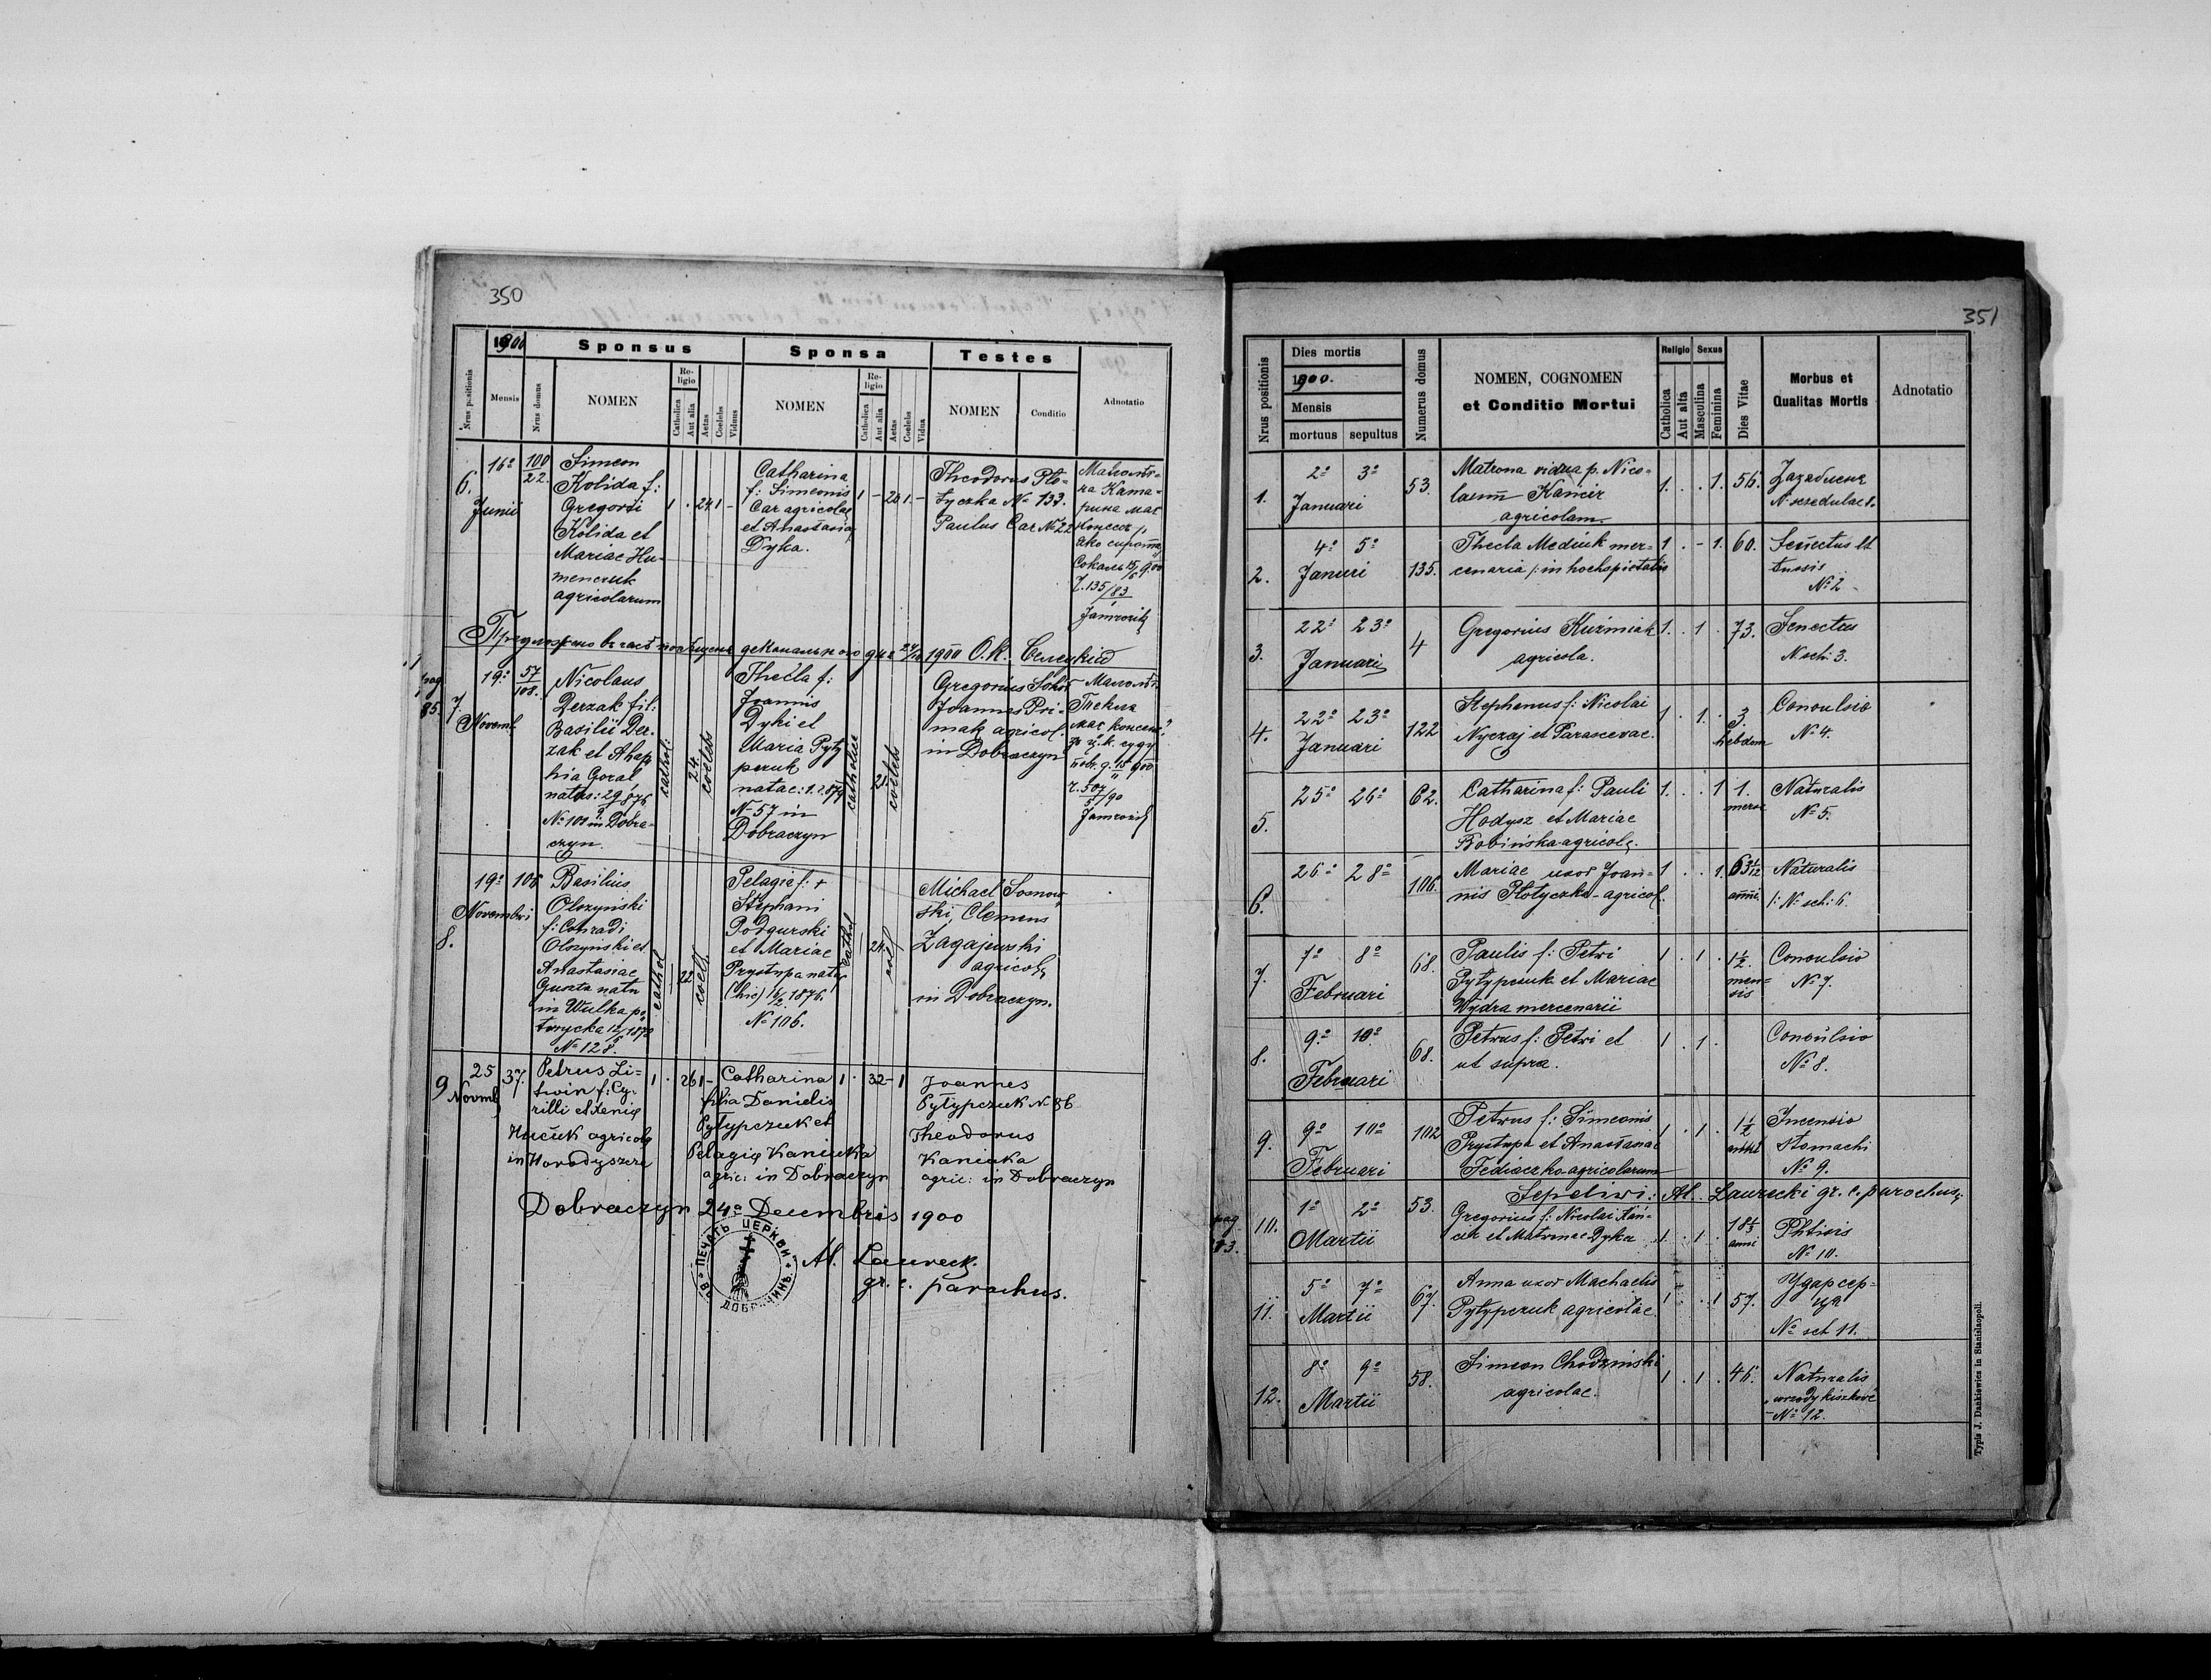 350
1900
Sponsus
Sponsa
Testes
Nrus positionis
Mensis
Nrus domus
NOMEN
Religio
Catholica
Aut alia
Aetas
Coelebs
Viduus
NOMEN
Religio
Catholica
Aut alia
Aetas
Coelebs
Vidua
NOMEN
Conditio
Adnotatio
6.
16º
Junii
100
22.
Simeon
Kolida f:
Gregorii
Kolida et
Mariae Hu-
menczuk
agricolarum
1 . 24 1 -
Catharina
f: Simeonis
Car agricolae
et Anastasia
Dyka.
1 - 20 1. -
Theodorus Pło-
tyczka № 133.
Paulus Car № 22
Малолѣт-
на Ката-
рина має
консенс
яко сирота
Сокаль 15/6 900
135/83
7.
19º
Novemb
57
108.
Nicolaus
Derzak fil:
Basilii Der-
zak et Ahap-
hia Goral
natus: 29
№ 108 in Dobra-
czyn.
cathol:
24.
coelebs
Thecla f:
Joannis
Dyki et
Maria Pyty
pczuk
natae:
№ 57 in
Dobraczyn
catholica
21
coelebs
Gregorius Sokół
Joannes Pri-
mak agricol.
in Dobraczyn
Малолѣт.
Текля
має консенс
ц. к. суду
пов. 15/11 900
507/90
8.
19º
Novembri
106
Basilius
Olszyński
f: Conradi
Olszyński et
Anastasiae
Guszta natu
in Wulka po
turycka
№ 128
cathol
22
coel.
Pelagia f: +
Stephani
Podgurski
et Mariae
Prystupa nata
(hic) 16/2 1876.
№ 106.
cathol
24.
col
Michael Sosnow-
ski, Clemens
Zagajewski
agricol.
in Dobraczyn.
9
25
Novmb
37.
Petrus Li-
twin f: Cy-
rilli et Xenia
Hučuk agricola
in Horodyszcze
1 . 26 1 -
Catharina
filia Danielis
Pytypczuk et
Pelagia Kaniuka
agric: in Dobraczyn
1 . 32 - 1
Joannes
Pytypczuk № 86
Theodorus
Kaniuka
agric: in Dobraczyn
Dobraczyn 24ª Decembris 1900
Al. Laureck.
gr. c. parochus.
ПЕЧАТЬ ЦЕРКВИ
351
Nrus positionis
Dies mortis
1900.
Mensis
mortuus
sepultus
Numerus domus
NOMEN, COGNOMEN
et Conditio Mortui
Religio
Catholica
Aut alta
Sexus
Masculina
Feminina
Dies Vitae
Morbus et
Qualitas Mortis
Adnotatio
1.
2º 3º
Januari
53.
Matrona vidua p. Nico-
laum Kancir
agricolam.
1. . . 1. 56.
2.
4º 5º
Januri
135.
Thecla Mediuk mer-
cenaria /: in hochspictatis
1 . - 1. 60.
Senectus et
tussis
№ 2
3.
22º 23º
Januari
4
Gregorius Kuźmiak
agricola.
1. . 1 . 73.
Senectus
№ sch: 3.
4.
22º 23º
Januari
122
Stephenus f: Nicolai
Nyczaj et Parascevae.
1 . 1. .
3.
hebdom
Convulsio
№ 4.
5.
25º 26º
62.
Catharina f: Pauli
Hodysz et Mariae
Kobińska agricol.
1. . . 1
1.
mense
Naturalis
№ 5.
6.
26º 28º
106.
Mariae uxor Joan-
nis Płotyczka - agricol.
1 . . 1.
63 1/12
anni.
Naturalis
/: № sch: 6.
7.
7º 8º
Februari
68.
Paulis f: Petri
Pytypczuk et Mariae
Wydra mercenarii
1 . 1 .
1½
men-
sis
Convulsio
№ 7.
8.
9º 10º
Februari
68.
Petrus f: Petri et
ut supra.
1 . 1 .
Convulsio
№ 8.
9.
9º 10º
Februari
102
Petrus f: Simeonis
Prystupa et Anastasiae
Fediaczko agricolarum
1 . 1 .
1½
Incensio
stomachi
№ 9.
Sepelivi: Al. Laurecki gr. c. parochus;
10.
1º 2º
Martii
53.
Gregorius f: Nicolai Kan-
cir et Matronae Dyka
1. . 1 .
18⅓
anni
Phtisis
№ 10.
11.
5º 7º
Martii
67.
Anna uxor Machaelis
Pytypczuk agricolae.
1 . . 1 57.
Удар сер-
ця
№ sch 11.
12.
8º 9º
Martii
58.
Simeon Chodzinski
agricolae.
1 . 1 . 46.
Naturalis
wrzody kiszkowe
№ 12.
Typis J. Dankiewicz in Stanislaopoli.